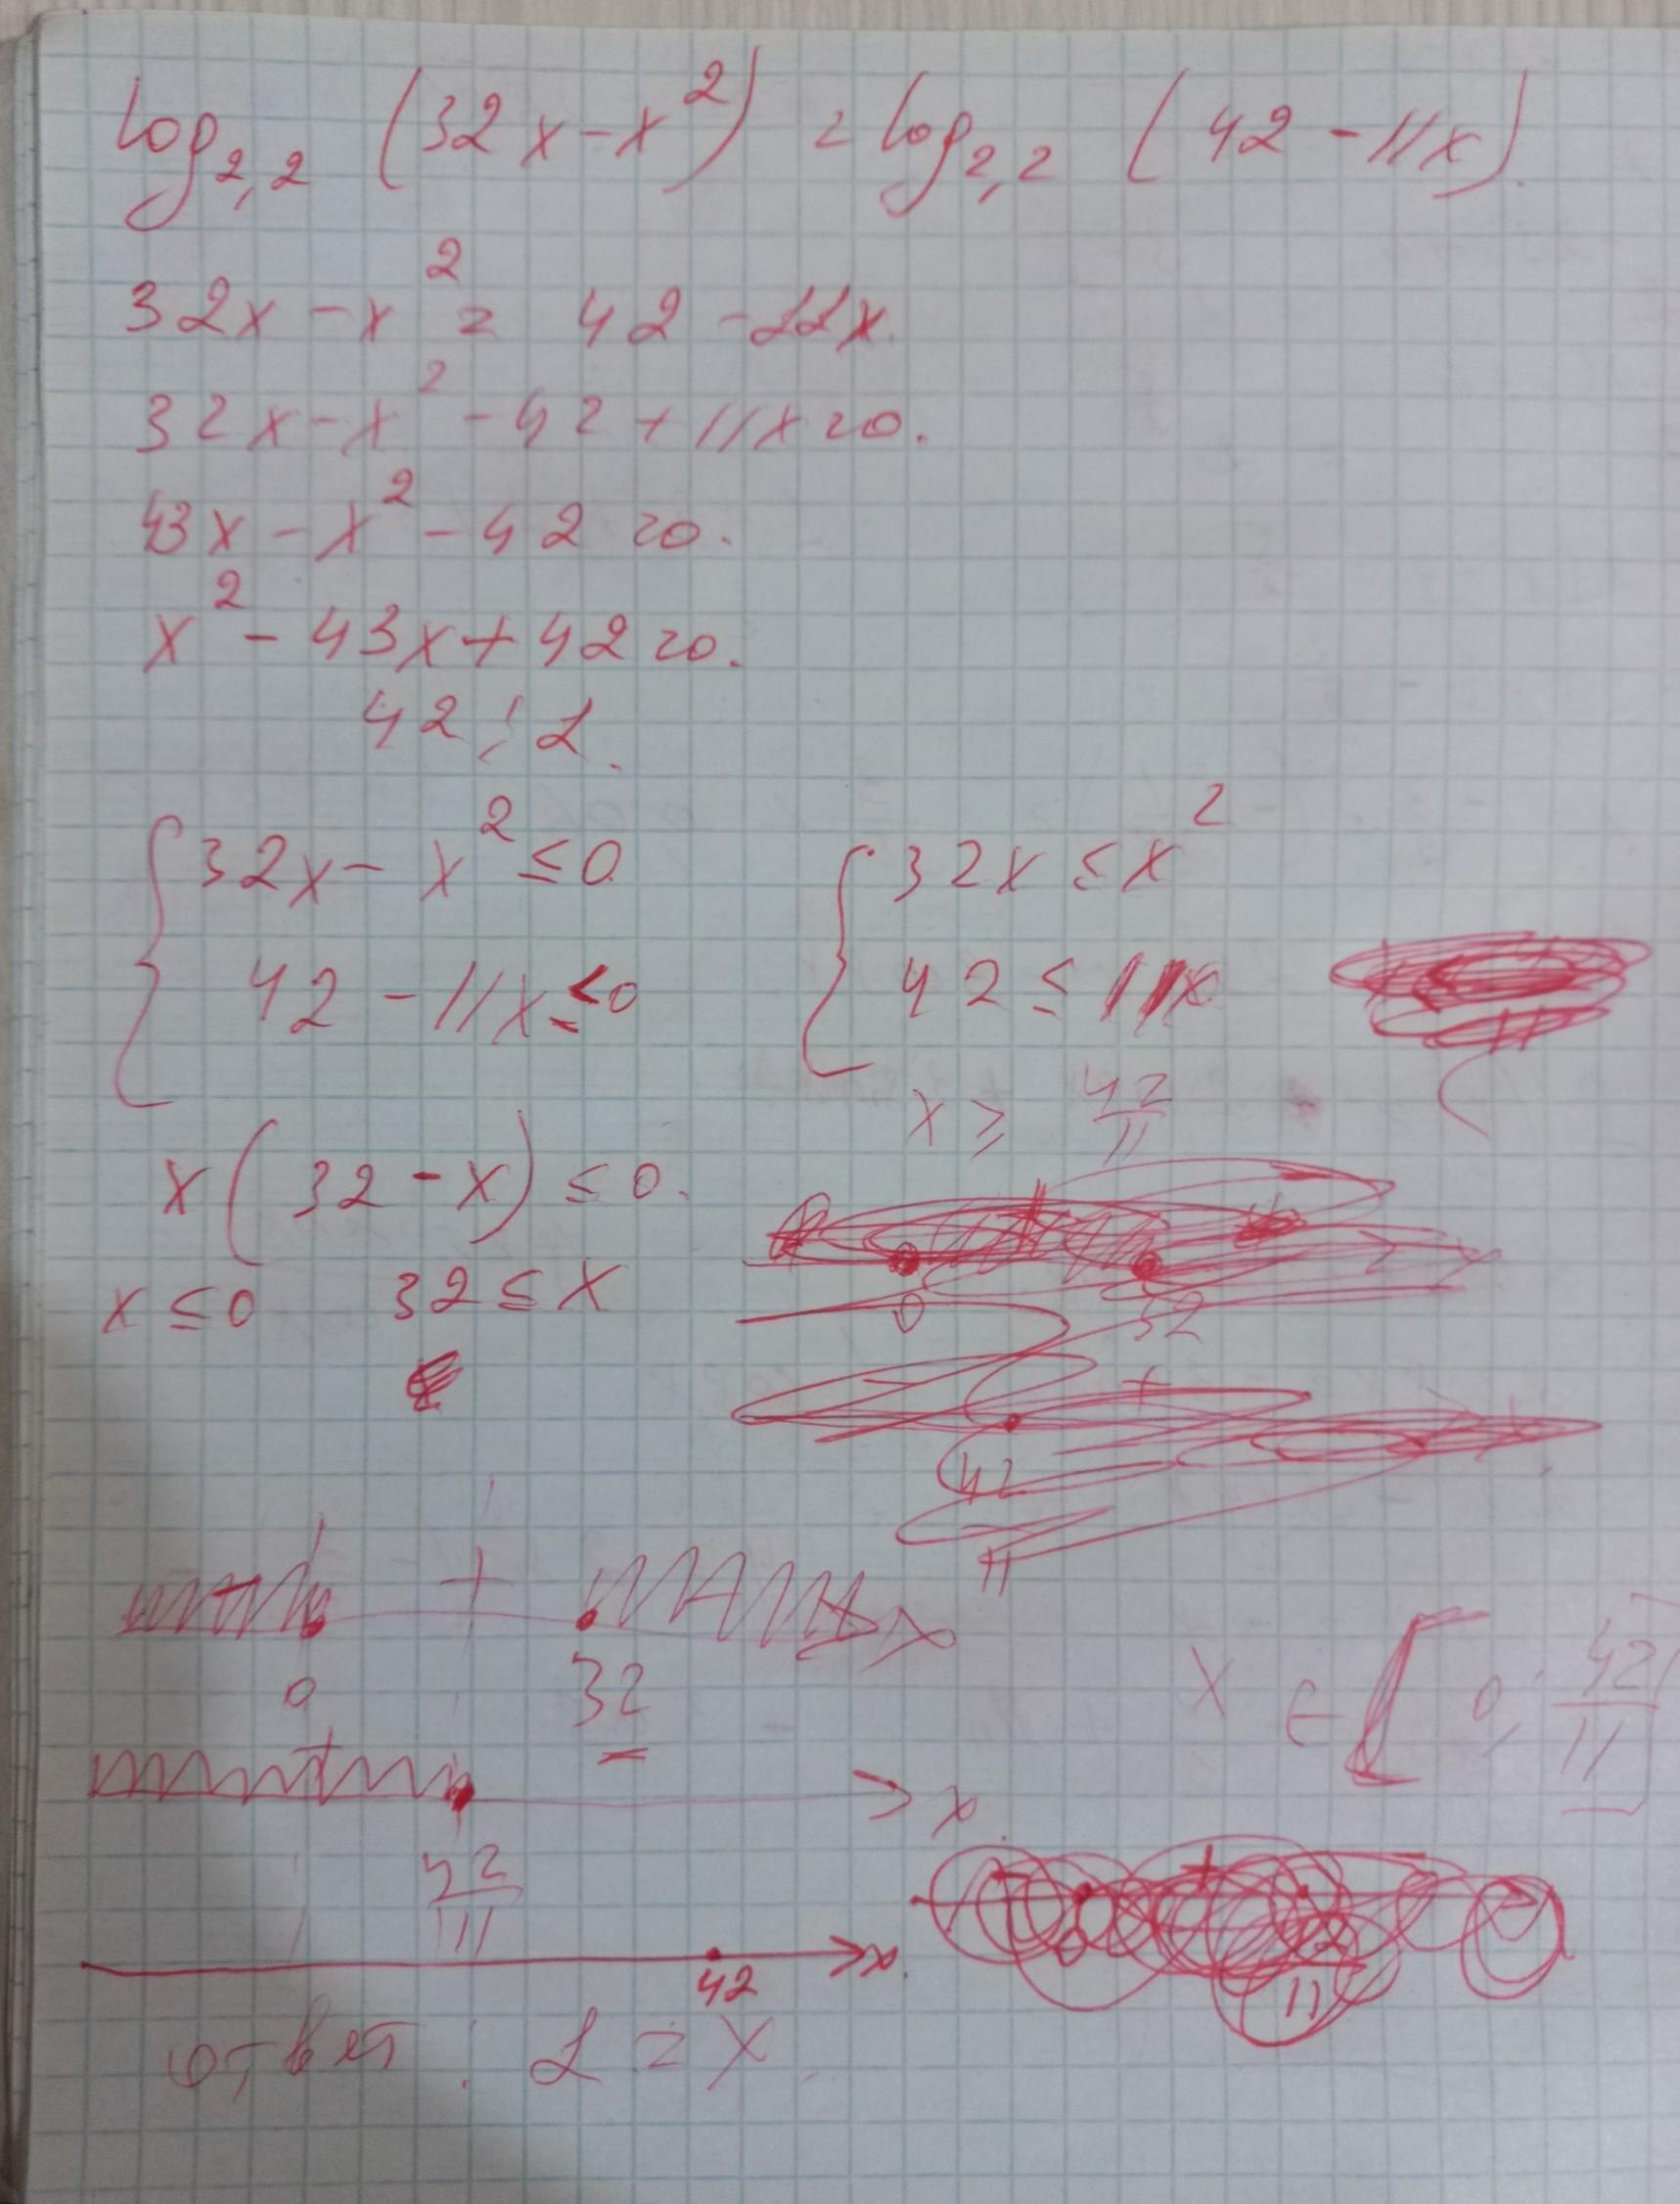 log₂,₂ (32x - x²) = log₂,₂ (42 - 11x).
32x - x² = 42 - 11x.
32x - x² - 42 + 11x = 0.
43x - x² - 42 = 0.
x² - 43x + 42 = 0.
42 ; 1.
{ 32x - x² ≤ 0 { 32x ≤ x²
42 - 11x ≤ 0 42 ≤ 11x
x ≥ 42/11
x(32 - x) ≤ 0.
x ≤ 0 32 ≤ x
0 32
42
11
- + - x
0 32
x ∈ [0; 42/11]
+ - x
42/11
42 x.
0 11
ответ: 1 = x.